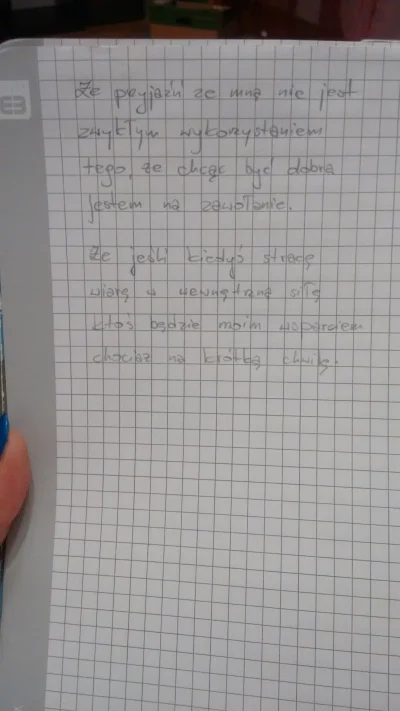 Że przyjaźń ze mną nie jest
zwykłym wykorzystaniem
tego, że chcąc być dobra
jestem na zawołanie.
Że jeśli kiedyś stracę
wiarę w wewnętrzną siłę
ktoś będzie moim wsparciem
chociaż na krótką chwilę.